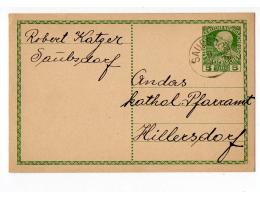 Robert Katzer
Saubsdorf
An das
kathol. Pfarramt
Hillersdorf
5 5